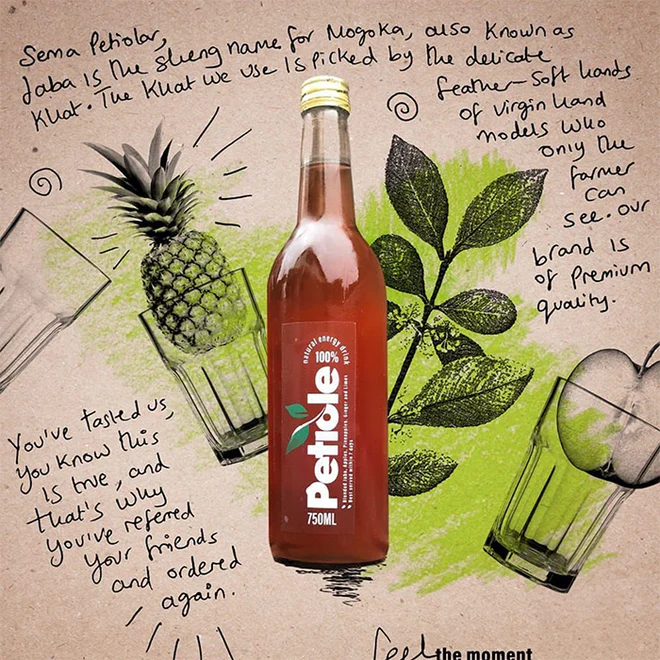 Sema Petiolar,
Jaba is the sheng name for Mogoka, also known as
Khat. The Khat we use is picked by the delicate
feather-soft hands
of virgin hand
models who
only the
farmer
can
see. Our
brand is
of premium
quality.
natural energy drink
100%
Petiole
Blended Jaba, Apples, Pineapples, Ginger and Limes
Best served within 7 days
750ML
You've tasted us,
you know this
is true, and
that's why
you've refered
your friends
and ordered
again.
feel the moment